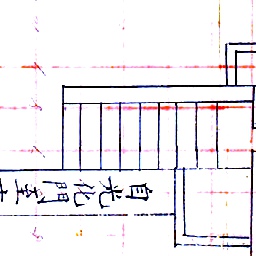 自光化門至